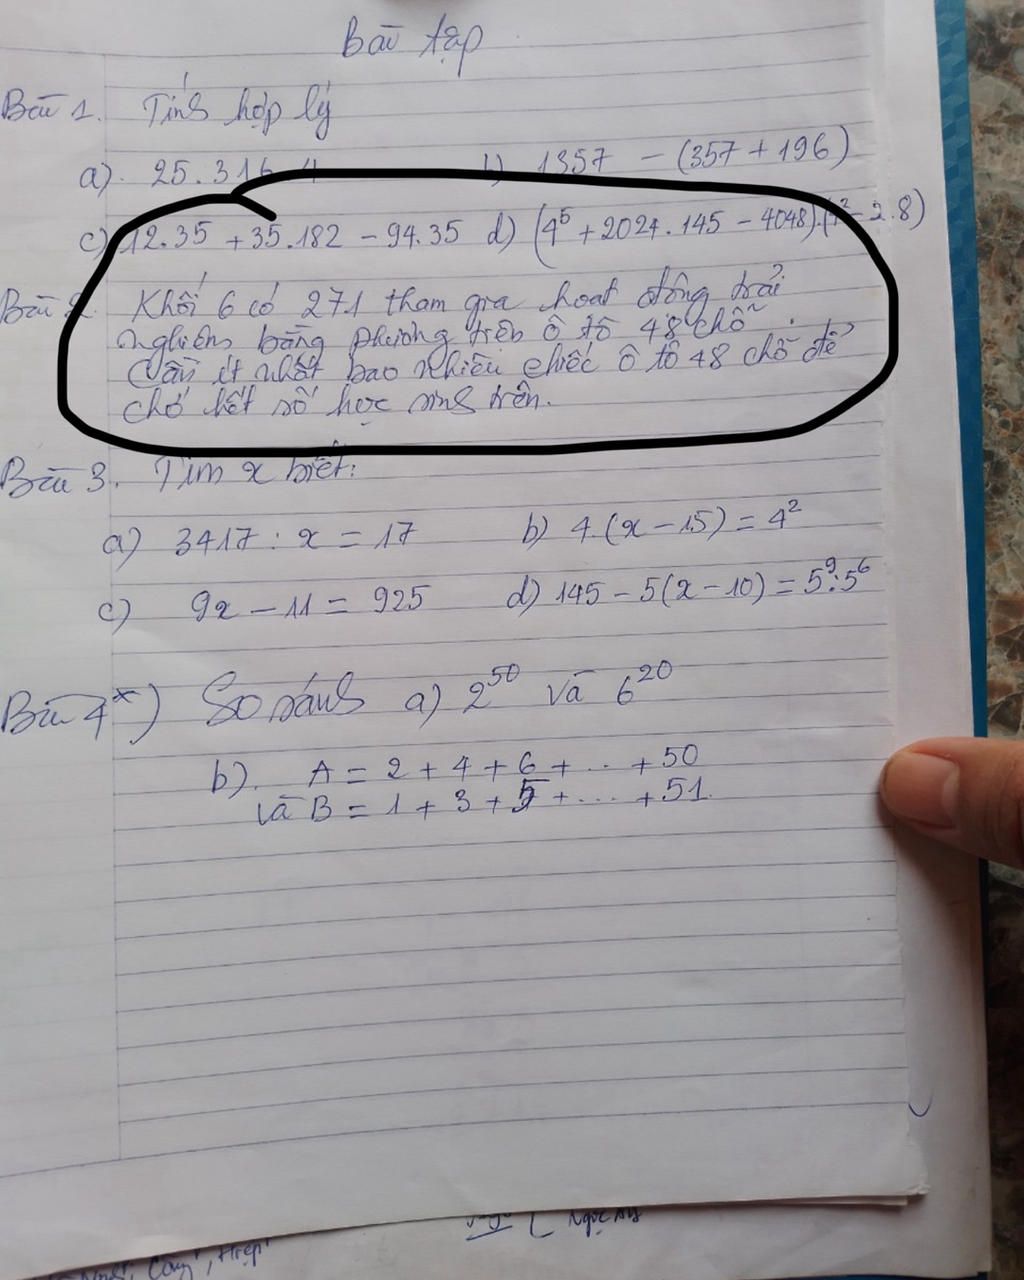 Bài tập
Bài 1. Tính hợp lý
a). 25.316.4 b) 1357 - (357 + 196)
c) 12.35 + 35.182 - 94.35 d) (4⁵ + 2024.145 - 4048).(4² - 2.8)
Bài 2. Khối 6 có 271 tham gia hoạt động trải
nghiệm bằng phương trên ô tô 48 chỗ.
Cần ít nhất bao nhiêu chiếc ô tô 48 chỗ để
chở hết số học sinh trên.
Bài 3. Tìm x biết:
a) 3417 : x = 17 b) 4.(x - 15) = 4²
c) 9x - 11 = 925 d) 145 - 5(x - 10) = 5⁹:5⁶
Bài 4*) So sánh a) 2⁵⁰ và 6²⁰
b). A = 2 + 4 + 6 + ... + 50
và B = 1 + 3 + 5 + ... + 51.
Ngọc
, Hiệp